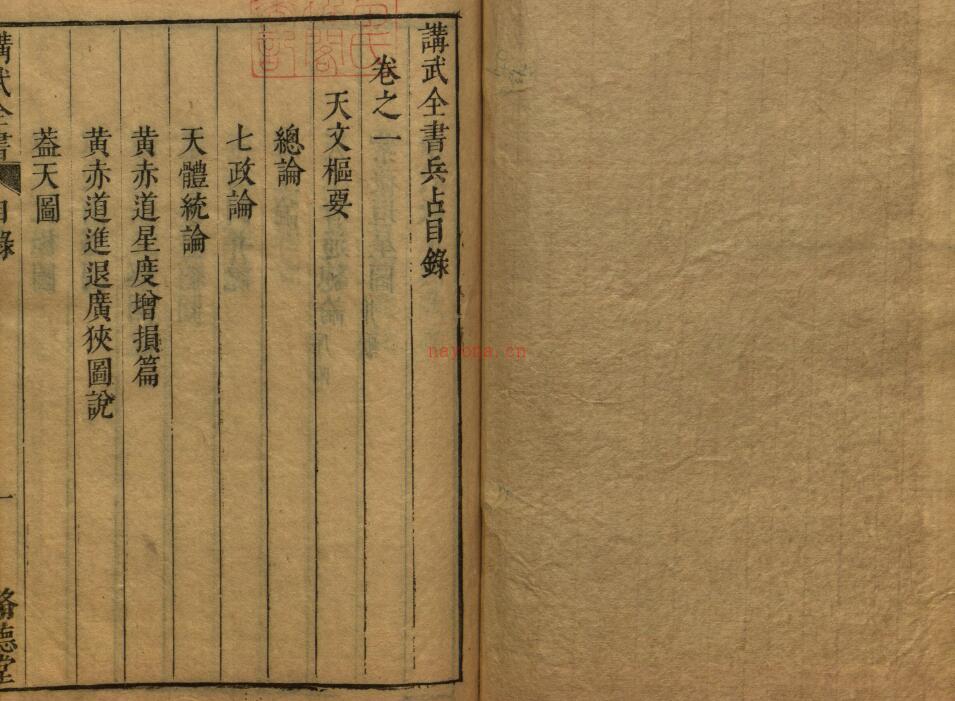 講武全書兵占目錄
卷之一
天文樞要
總論
七政論
天體統論
黃赤道星度增損篇
黃赤道進退廣狹圖說
葢天圖
講武全書
目錄
一
nayona.cn